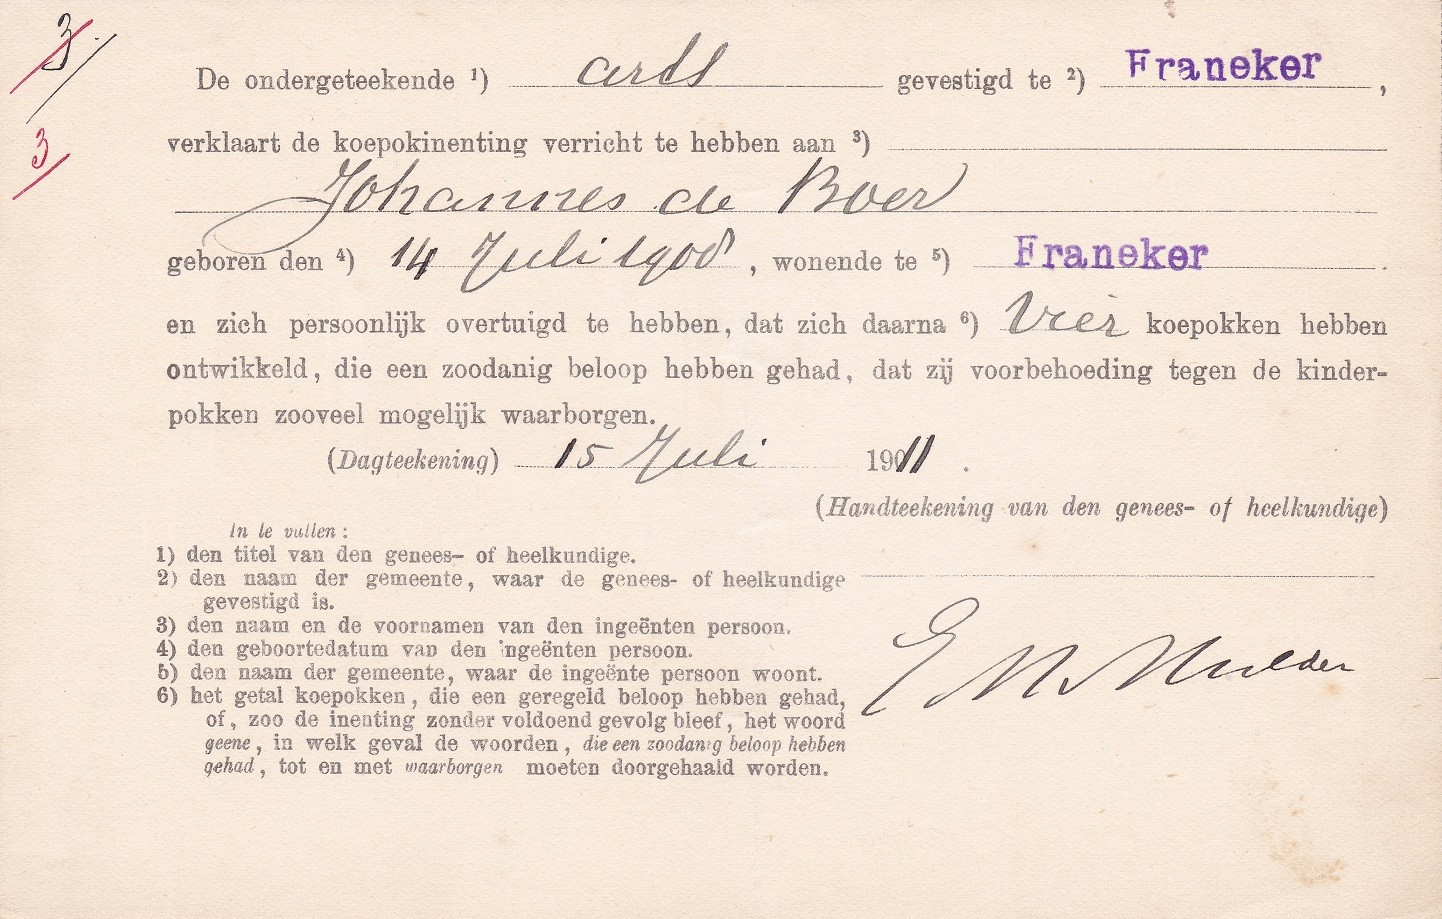 3
3
De ondergeteekende ¹) arts gevestigd te ²) Franeker ,
verklaart de koepokinenting verricht te hebben aan ³)
Johannes de Boer
geboren den ⁴) 14 Juli 1908 , wonende te ⁵) Franeker .
en zich persoonlijk overtuigd te hebben, dat zich daarna ⁶) Vier koepokken hebben
ontwikkeld, die een zoodanig beloop hebben gehad, dat zij voorbehoeding tegen de kinder-
pokken zooveel mogelijk waarborgen.
(Dagteekening) 15 Juli 1911 .
(Handteekening van den genees- of heelkundige)
In te vullen :
1) den titel van den genees- of heelkundige.
2) den naam der gemeente, waar de genees- of heelkundige
gevestigd is.
3) den naam en de voornamen van den ingeënten persoon.
4) den geboortedatum van den ingeënten persoon.
5) den naam der gemeente, waar de ingeënte persoon woont.
6) het getal koepokken, die een geregeld beloop hebben gehad,
of, zoo de inenting zonder voldoend gevolg bleef, het woord
geene, in welk geval de woorden, die een zoodanig beloop hebben
gehad, tot en met waarborgen moeten doorgehaald worden.
Mulder